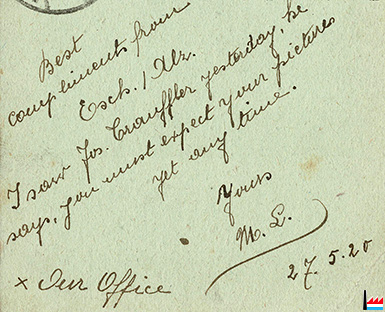 Best
compliments from
Esch. / Alz.
I saw Jos. Trauffler yesterday, he
says, you must expect your pictures
yet any time.
Yours
M. L.
27. 5. 20
x Our Office